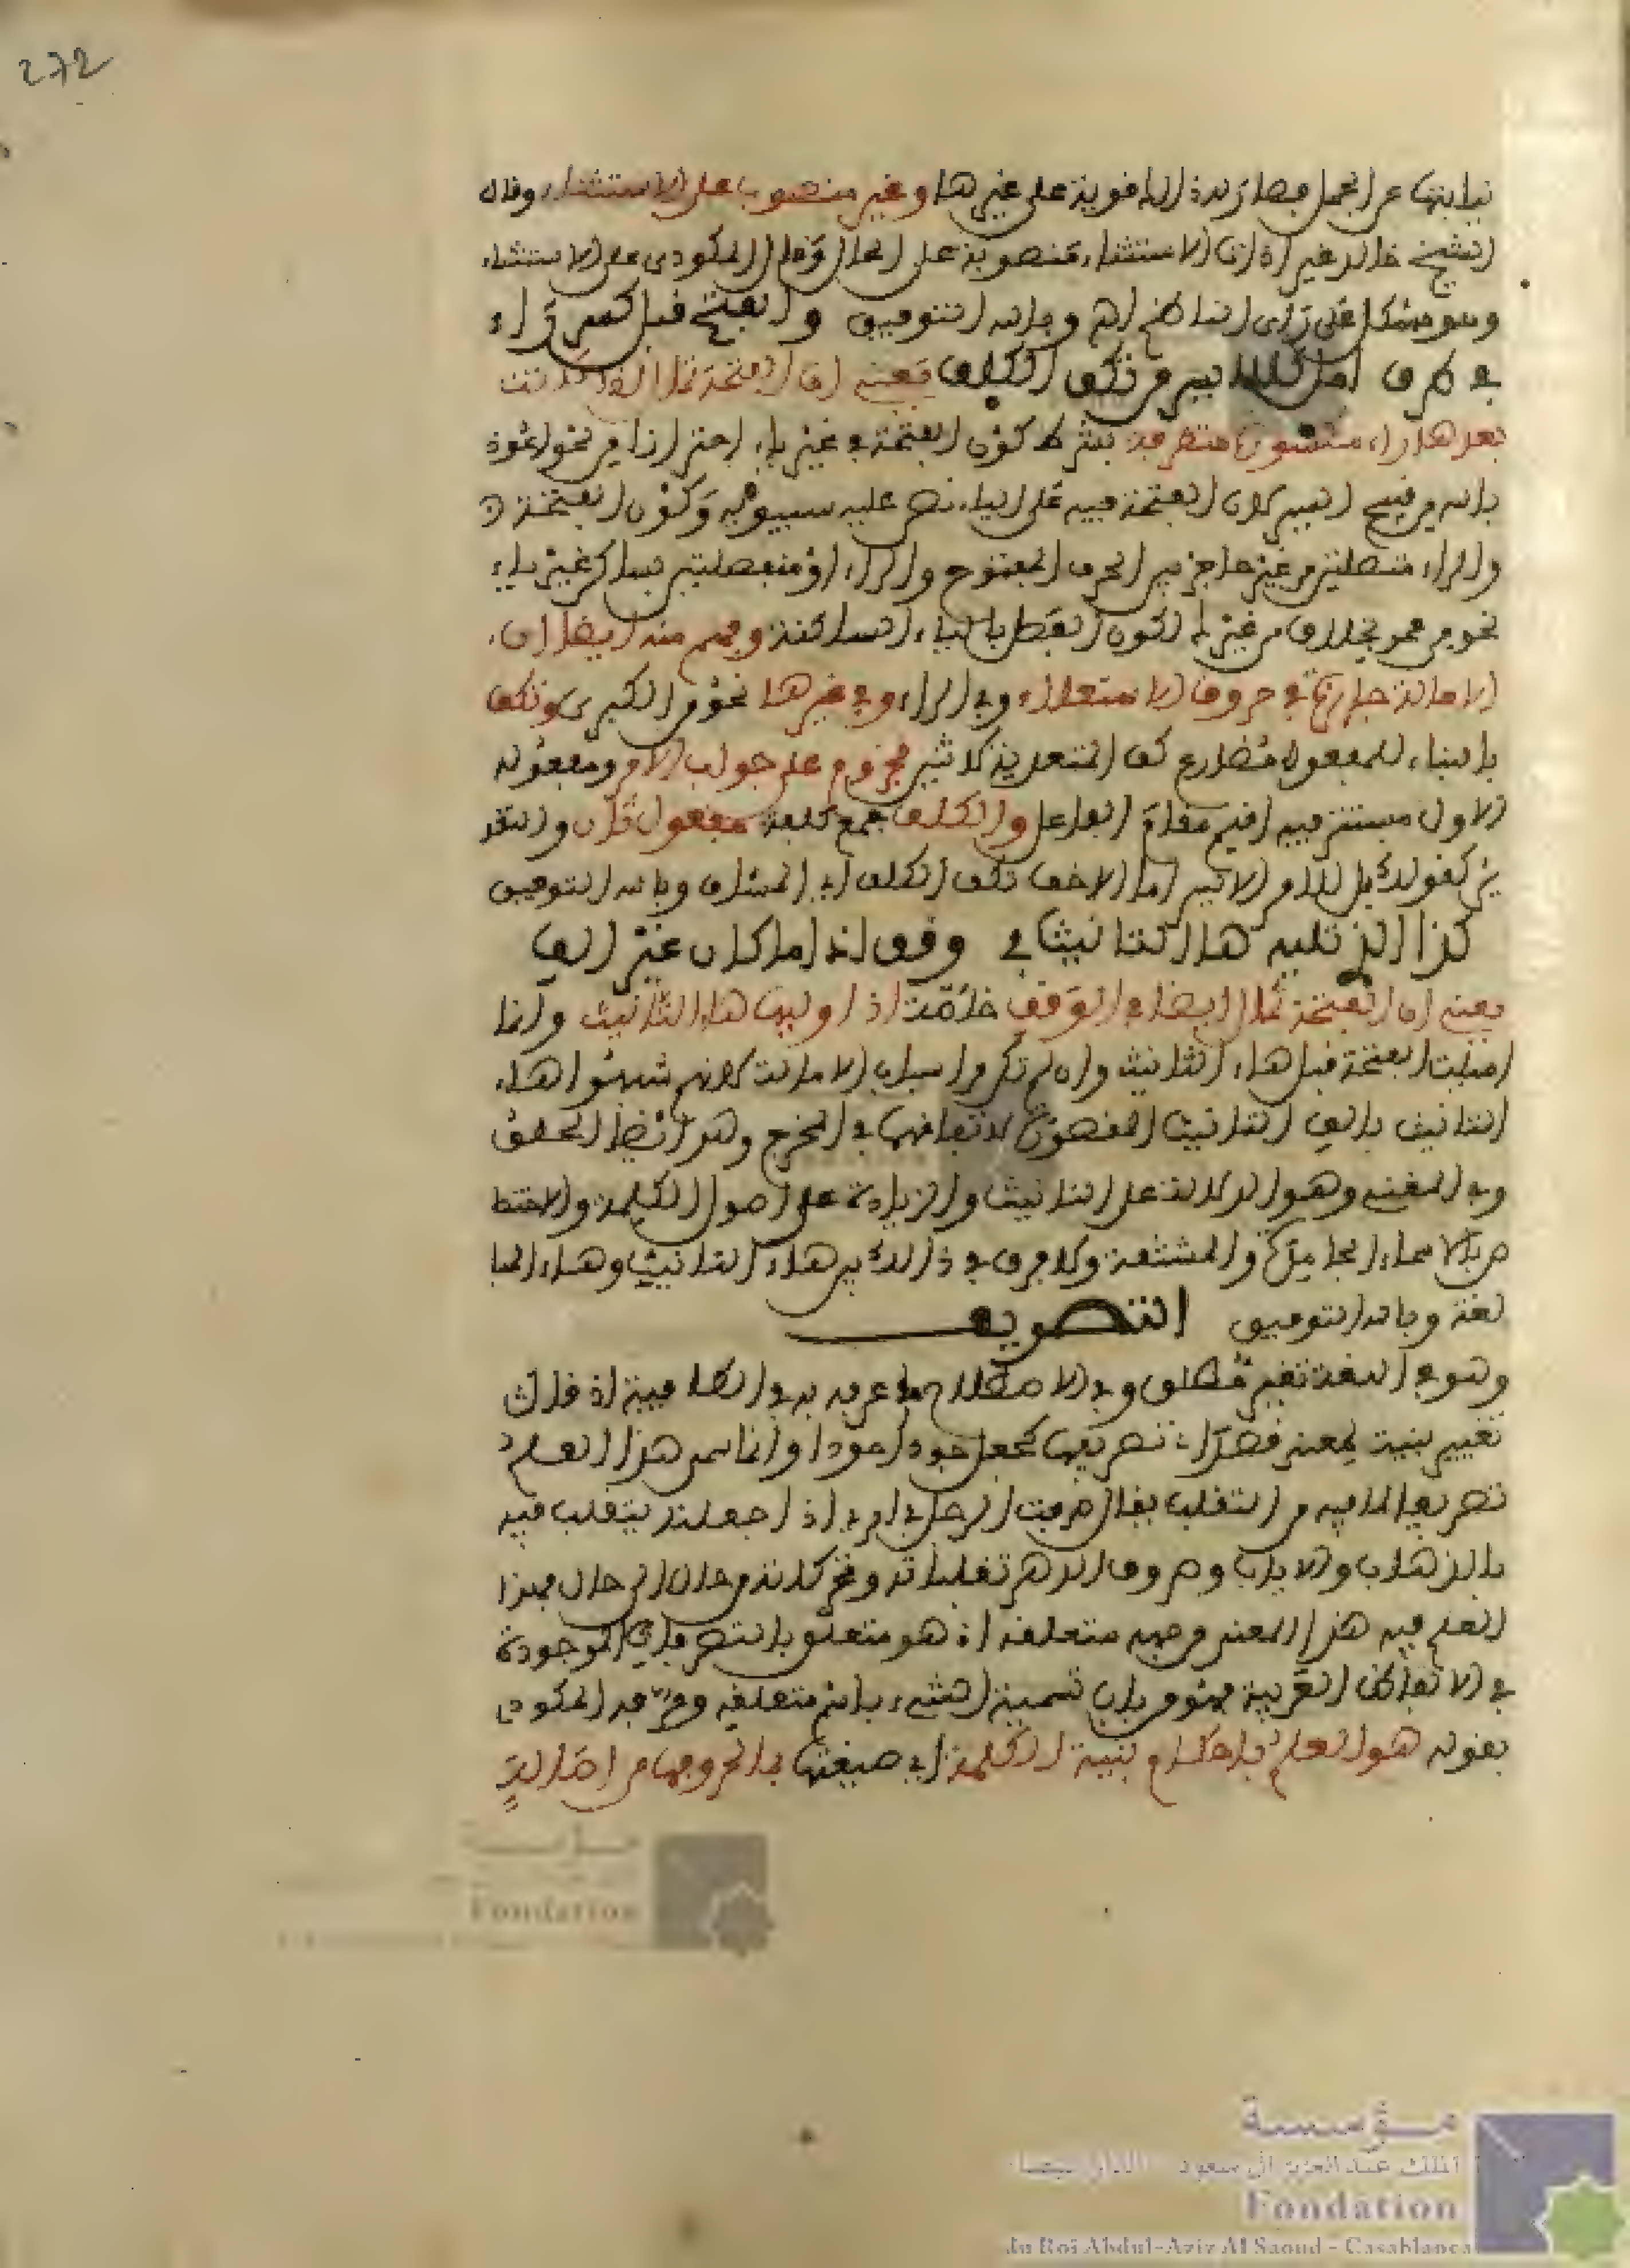 272
نيابتها عن الجمل فصارت لذالك قوية على غيرها وغير منصوب على الاستثناء وقال
الشيخ خالد غير اداة الاستثناء منصوبة على الحال وقال المكودى على الاستثناء
وهو مشكل على راى الناظم اه وبالله التوفيق والفتح قبل كسر راء
في طرف امل كلالايسر مل تكف الكلف يعنى ان الفتحة تمال اذا كانت
بعدها راء مكسورة متطرفة بشرط كون الفتحة في غير ياء احترازا من نحو اعوذ
بالله من قبح السير لان الفتحة فيه على الياء نص عليه سيبويه وكون الفتحة
والراء متصلتين من غير حاجز بين الحرف المفتوح والراء او منفصلتين بساكن غير ياء
نحو من عمرو بخلاف من غير لكون الفصل بالياء الساكنة وفهم منه ايضا ان
الامالة جارية في حروف الاستعلاء وفي الراء وفي غيرها نحو من الكبر وتكف
بالبناء للمفعول مضارع كف المتعدية لاثنين مجزوم على جواب الامر ومفعوله
الاول مستتر فيه اقيم مقام الفاعل والكلف جمع كلفة مفعول ثان والتقد
ير كقولك مل للامر الايسر اى الاخف تكف الكلف اى المشاق وبالله التوفيق
كذا الذى تليه ها التانيث في وقف اذا ما كان غير الف
يعنى ان الفتحة تمال ايضا في الوقف خاصة اذا وليها هاء التانيث وانما
اميلت الفتحة قبل هاء التانيث وان لم تكن من اسباب الامالة لانهم شبهوا هاء
التانيث بالف التانيث المقصورة لاتفاقهما في المخرج وهو اقصى الحلق
وفي المعنى وهو الدلالة على التانيث والزيادة على اصول الكلمة والاختصا
ص بالاسماء الجامدة والمشتقة ولا فرق في ذالك بين هاء التانيث وهاء المبا
لغة وبالله التوفيق التصريف
وهو في اللغة تغيير مطلق وفي الاصطلاح ما عرفه به في الكافية اذ قال
تغيير بنية لمعنى قصدا تصريفها كجعل جود اجودا وانما سمى هذا العلم
تصريفا لما فيه من التقلب يقال صرفت الرجل في امرى اذا جعلته يتقلب فيه
بالذهاب والاياب وصروف الدهر تقلباته وتحركاته من حال الى حال فهذا
العلم فيه هذا المعنى من جهة متعلقه اذ هو متعلق بالتصرفات الموجودة
في الالفاظ العربية فهو من باب تسمية الشىء باسم متعلقه وعرفه المكودى
بقوله هو العلم باحكام بنية الكلمة اى صيغتها بما لحروفها من اصالة
مؤسسة
الملك عبد العزيز آل سعود - الدار البيضاء
Fondation
du Roi Abdul-Aziz Al Saoud - Casablanca